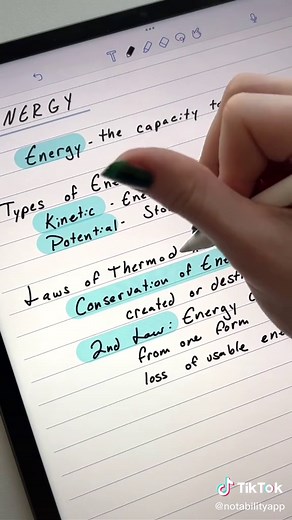 NERGY
Energy - the capacity to
Types of Ene
Kinetic - Ene
Potential - Sto
Laws of Thermod
Conservation of Ene
created or dest
2nd Law: Energy c
from one form
loss of usable ene
TikTok
@notabilityapp